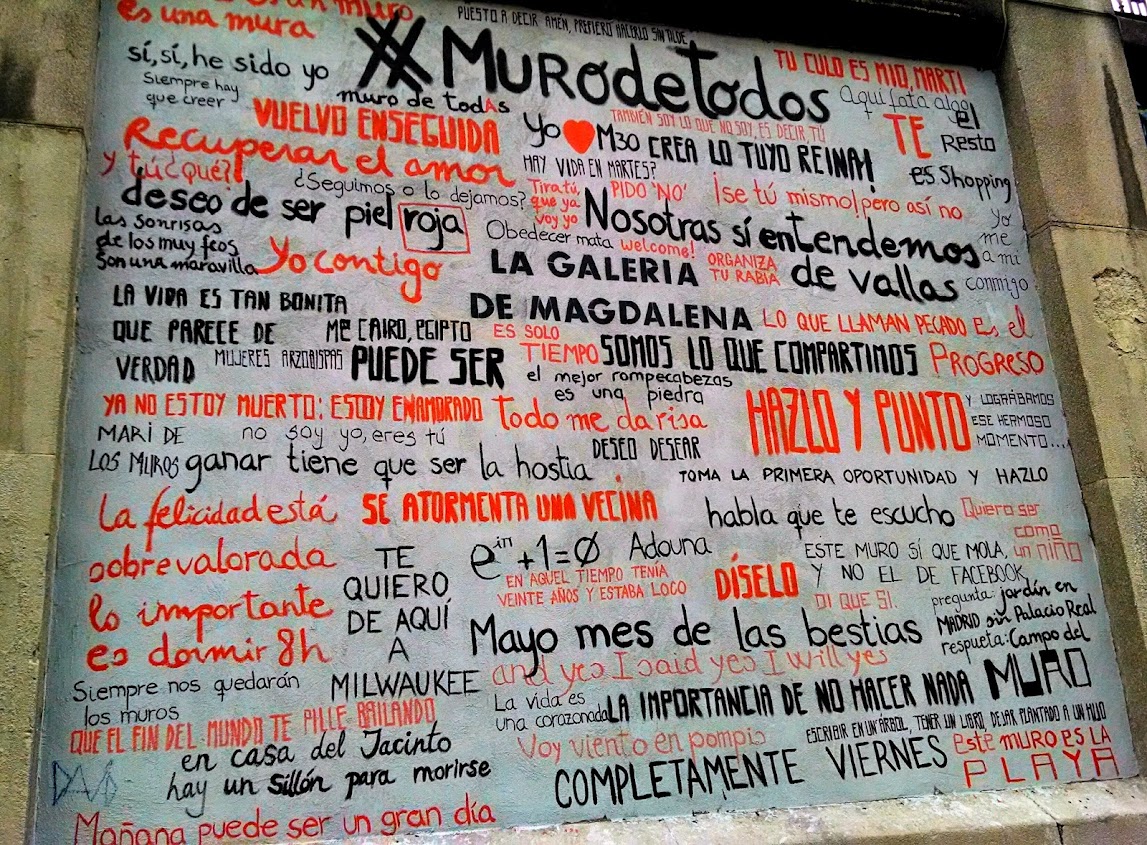 es una mura
PUESTO A DECIR AMÉN, PREFIERO HACERLO SIN TILDE
sí, sí, he sido yo
#MUROdetodos
TU CULO ES MIO, MARTI
Siempre hay
que creer
muro de todAs
Aquí fata algo
VUELVO ENSEGUIDA
TAMBIÉN SOY LO QUE NO SOY, ES DECIR TÚ
Yo ♥ M30
CREA LO TUYO REINA!
TE
el
Resto
es Shopping
Recuperar el amor
HAY VIDA EN MARTES?
y tú ¿qué?!
¿Seguimos o lo dejamos?
Tira tú,
que ya
voy yo
PIDO 'NO'
¡se tú mismo! pero así no
deseo de ser piel roja
Nosotras sí entendemos
de vallas
Yo
me
a mi
conmigo
las sonrisas
de los muy feos
son una maravilla
Yo contigo
Obedecer mata
welcome!
ORGANIZA
TU RABIA
LA GALERIA
DE MAGDALENA
LA VIDA ES TAN BONITA
QUE PARECE DE
VERDAD
ME CAIRO, EGIPTO
ES SOLO
TIEMPO
LO QUE LLAMAN PECADO Es el
PROGRESO
MUJERES ARZOBISPAS
PUEDE SER
SOMOS LO QUE COMPARTIMOS
el mejor rompecabezas
es una piedra
YA NO ESTOY MUERTO: ESTOY ENAMORADO
Todo me da risa
HAZLO Y PUNTO
Y LOGRÁBAMOS
ESE HERMOSO
MOMENTO...
MARI DE
LOS MUROS
no soy yo, eres tú
DESEO DESEAR
ganar tiene que ser la hostia
TOMA LA PRIMERA OPORTUNIDAD Y HAZLO
La felicidad está
sobrevalorada
lo importante
es dormir 8h
SE ATORMENTA UNA VECINA
habla que te escucho
Quiero ser
como
un niño
TE
QUIERO
DE AQUÍ
A
MILWAUKEE
e^in+1=Ø
Adouna
ESTE MURO SÍ QUE MOLA,
Y NO EL DE FACEBOOK
EN AQUEL TIEMPO TENÍA
VEINTE AÑOS Y ESTABA LOCO
DÍSELO
DI QUE SI.
pregunta: jardín en
MADRID sin Palacio Real
respuesta: Campo del
MURO
Mayo mes de las bestias
and yes I said yes I will yes
Siempre nos quedarán
los muros
La vida es
una corazonada
LA IMPORTANCIA DE NO HACER NADA
QUE EL FIN DEL MUNDO TE PILLE BAILANDO
ESCRIBIR EN UN ÁRBOL, TENER UN LIBRO, DEJAR PLANTADO A UN HIJO
en casa del Jacinto
hay un sillón para morirse
Voy viento en pompis
COMPLETAMENTE VIERNES
este MURO es LA
PLAYA
Mañana puede ser un gran día